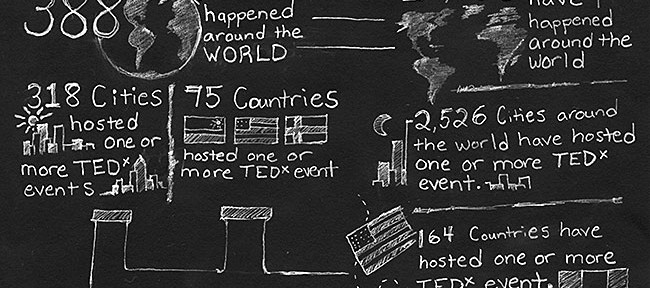 388
happened
around the
WORLD
318 Cities
hosted
one or
more TEDx
events
75 Countries
hosted one or
more TEDx event
have
happened
around the
world
2,526 Cities around
the world have hosted
one or more TEDx
event.
164 Countries have
hosted one or more
TEDx event.